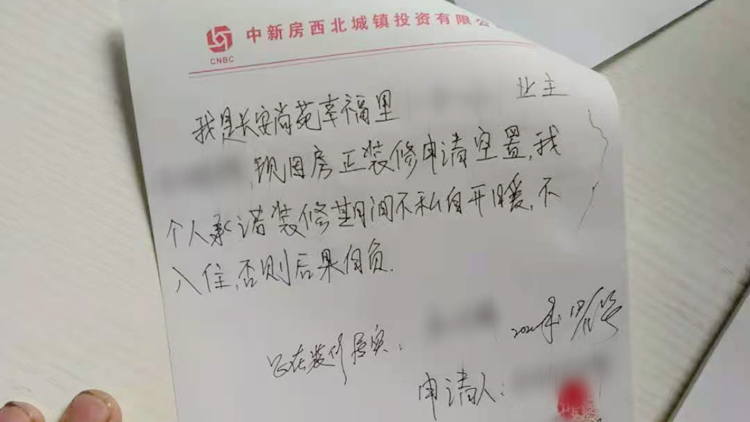 中新房西北城镇投资有限公
CNBC
我是长安尚苑幸福里 业主
现因房正装修申请空置,我
个人承诺装修期间不私自开暖,不
入住,否则后果自负.
正在装修属实.
申请人: